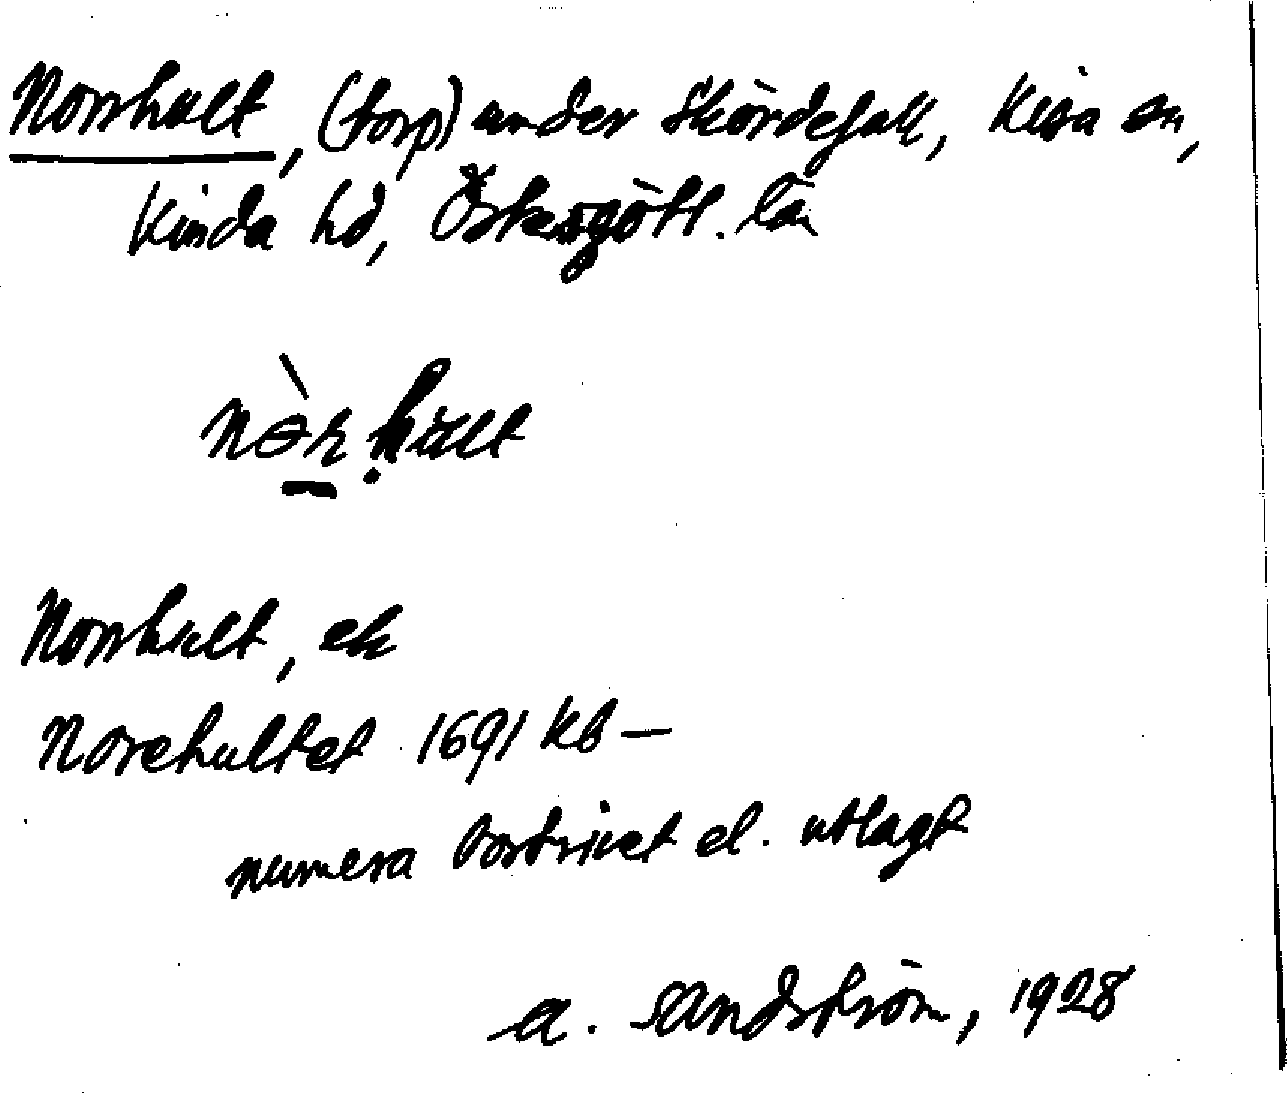 Norrhult, (torp) under Skördefall, Kisa sn,
Kinda hd, Östergötl. län
nɵ̀r hult
Norrhult, ek
Norehultet 1691 kb —
numera bortrivet el. utlagt
A. Sandström, 1928